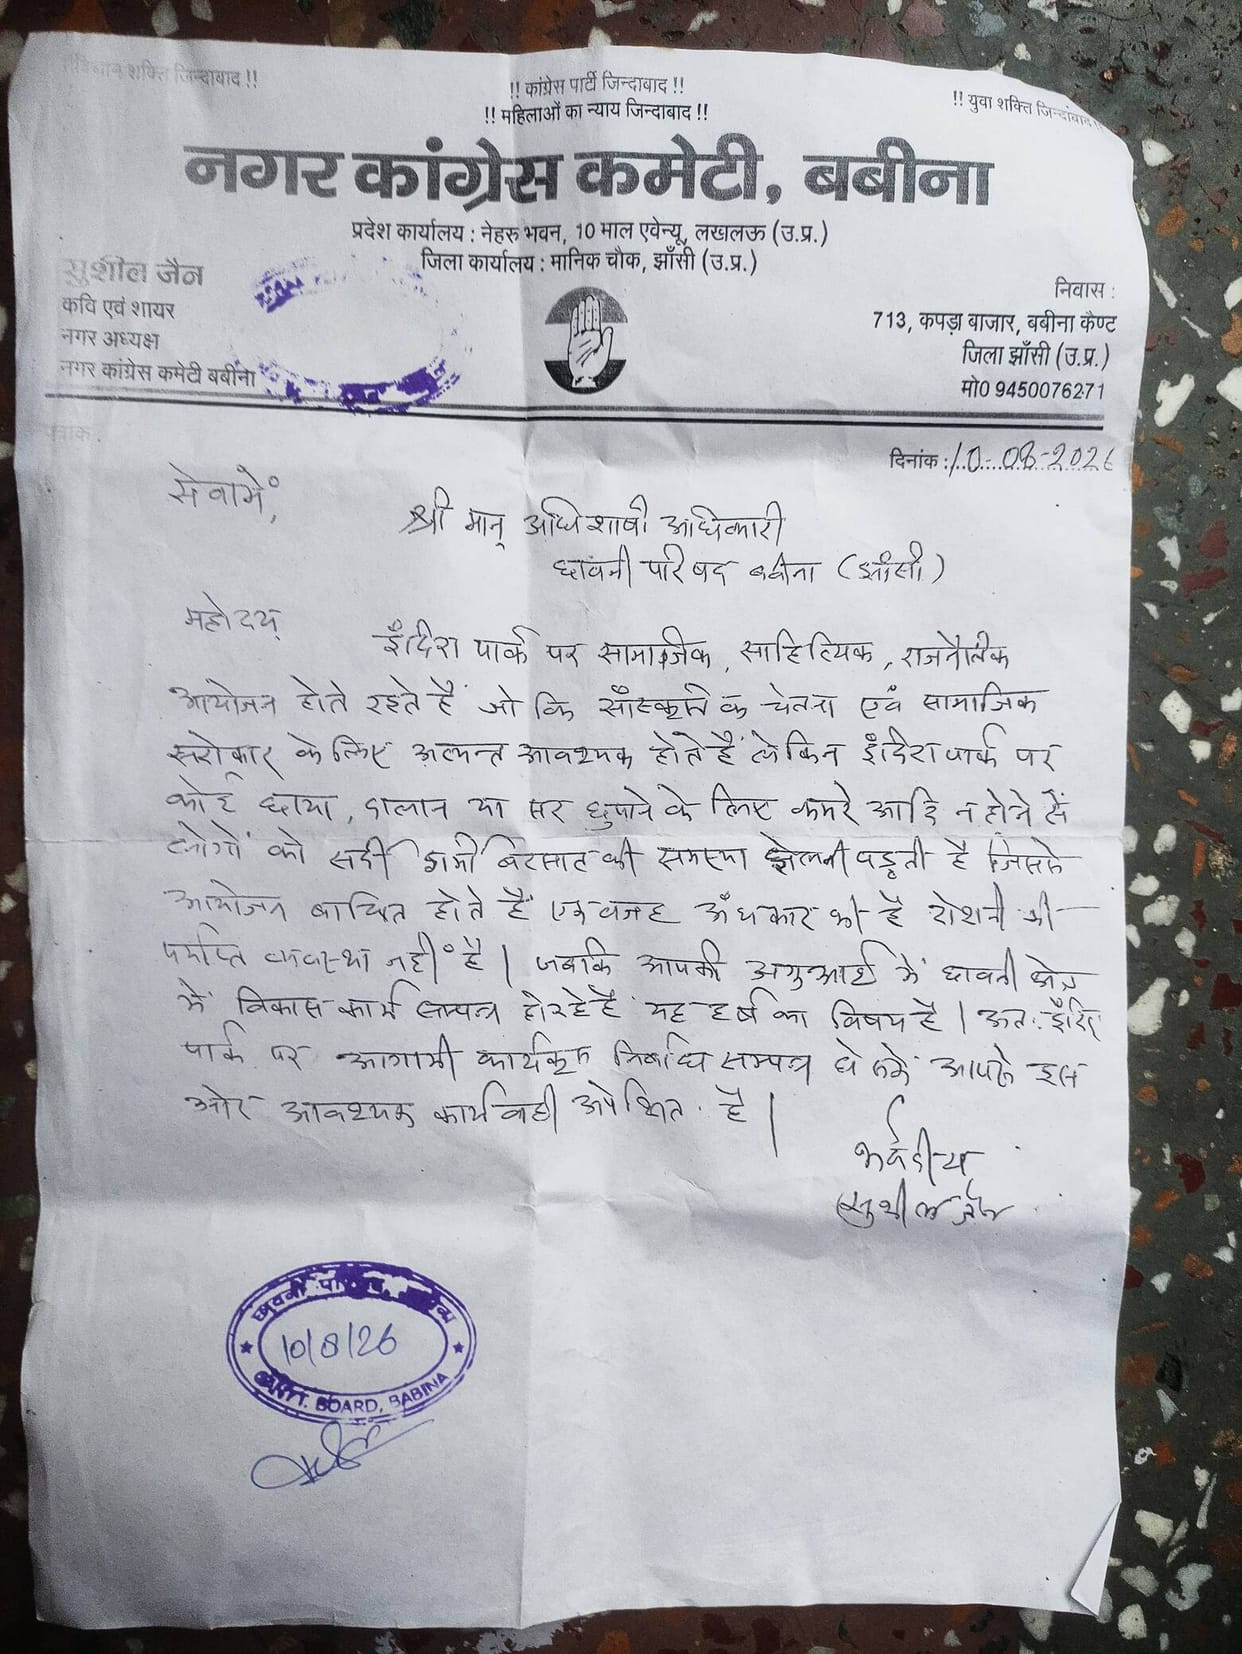 संविधान शक्ति जिन्दाबाद !!
!! कांग्रेस पार्टी जिन्दाबाद !!
!! महिलाओं का न्याय जिन्दाबाद !!
!! युवा शक्ति जिन्दाबाद !!
नगर कांग्रेस कमेटी, बबीना
प्रदेश कार्यालय : नेहरु भवन, 10 माल एवेन्यू, लखलऊ (उ.प्र.)
जिला कार्यालय : मानिक चौक, झाँसी (उ.प्र.)
सुशील जैन
कवि एवं शायर
नगर अध्यक्ष
नगर कांग्रेस कमेटी बबीना
निवास :
713, कपड़ा बाजार, बबीना कैण्ट
जिला झाँसी (उ.प्र.)
मो0 9450076271
पत्रांक :
दिनांक : 10-08-2026
सेवामें,
श्री मान् अधिशाषी अधिकारी
छावनी परिषद बबीना (झाँसी)
महोदय,
इँदिरा पार्क पर सामाजिक, साहित्यिक, राजनैतिक
आयोजन होते रहते हैं जो कि साँस्कृतिक चेतना एवं सामाजिक
सरोकार के लिए अत्यन्त आवश्यक होते हैं लेकिन इंदिरा पार्क पर
कोई छाया, दालान या सर छुपाने के लिए कमरे आदि न होने से
लोगों को सर्दी गर्मी बरसात की समस्या झेलनी पड़ती है जिससे
आयोजन बाधित होते हैं एक वजह अँधकार की है रोशनी की
पर्याप्त व्यवस्था नहीं है। जबकि आपकी अगुआई में छावनी क्षेत्र
में विकास कार्य सम्पन्न हो रहे हैं यह हर्ष का विषय है। अतः इँदिरा
पार्क पर आगामी कार्यक्रम निर्बाध सम्पन्न हो सकें आपसे इस
ओर आवश्यक कार्यवाही अपेक्षित है।
भवदीय
सुशील जैन
छावनी
10/8/26
CANTT. BOARD, BABINA